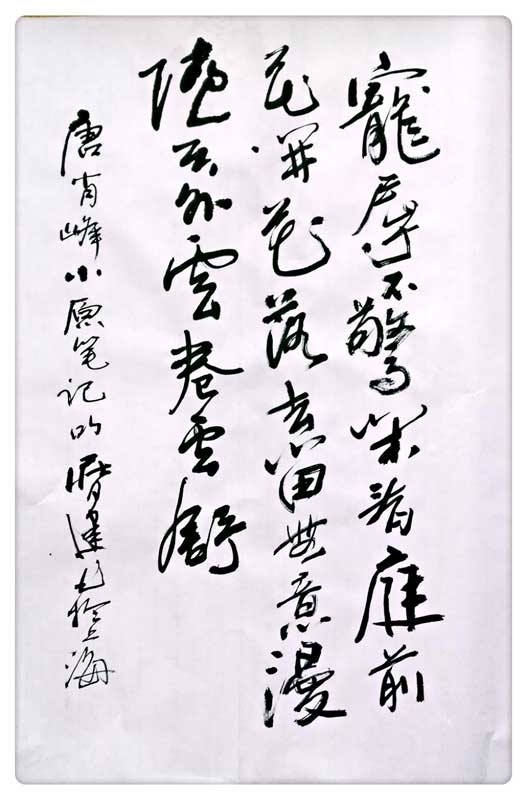 寵辱不驚看庭前
花開花落去留無意漫
隨天外雲卷云舒
唐肖峰小笔记建上海